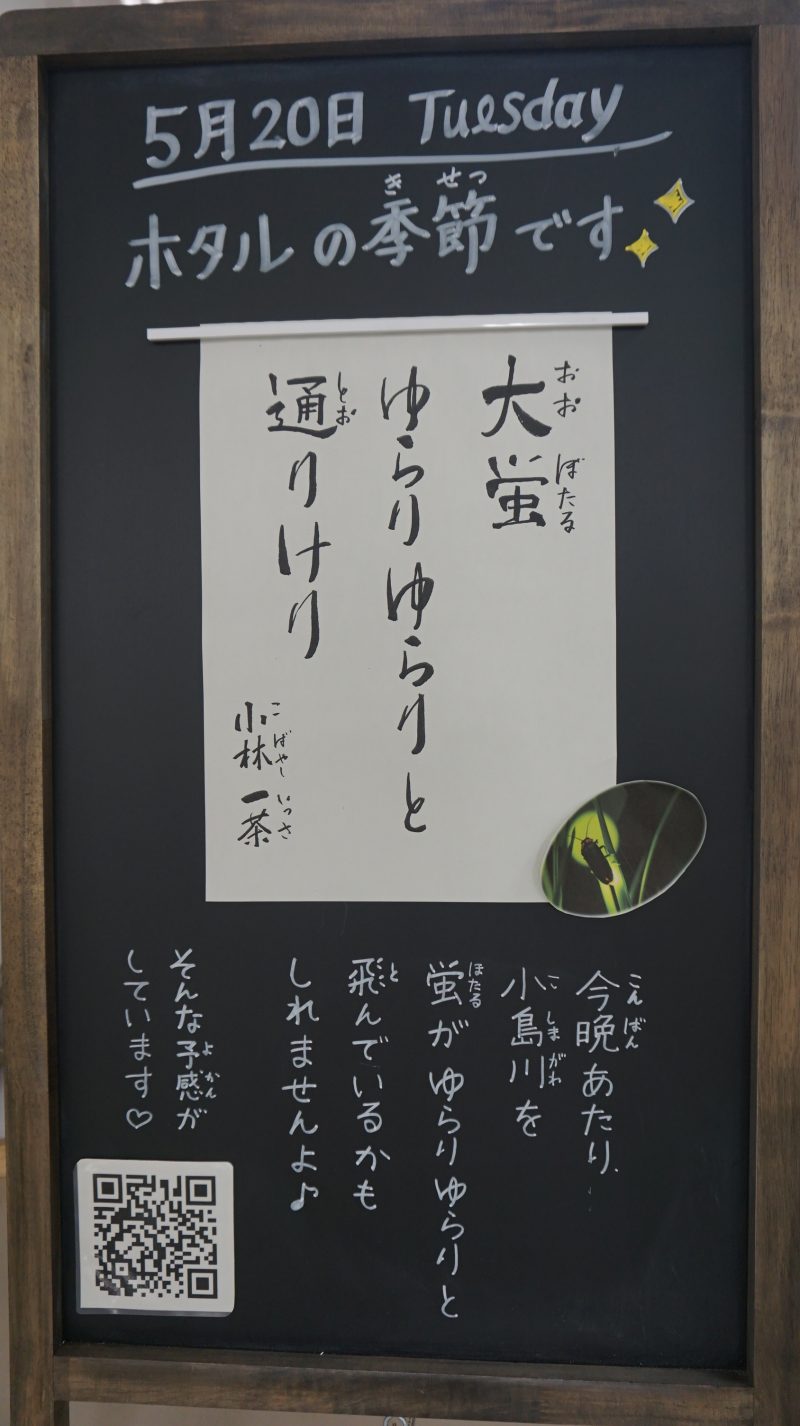 5月20日 Tuesday
きせつ
ホタルの季節です
おおぼたる
大蛍
ゆらりゆらりと
とお
通りけり
こばやし いっさ
小林一茶
こんばん
今晩あたり、
こしまがわ
小島川を
ほたる
蛍がゆらりゆらりと
と
飛んでいるかも
しれませんよ♪
よかん
そんな予感が
しています♡